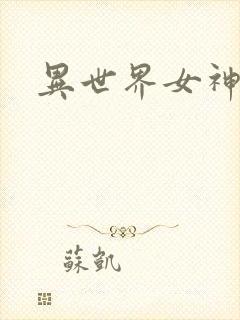 異世界女神
蘇凱